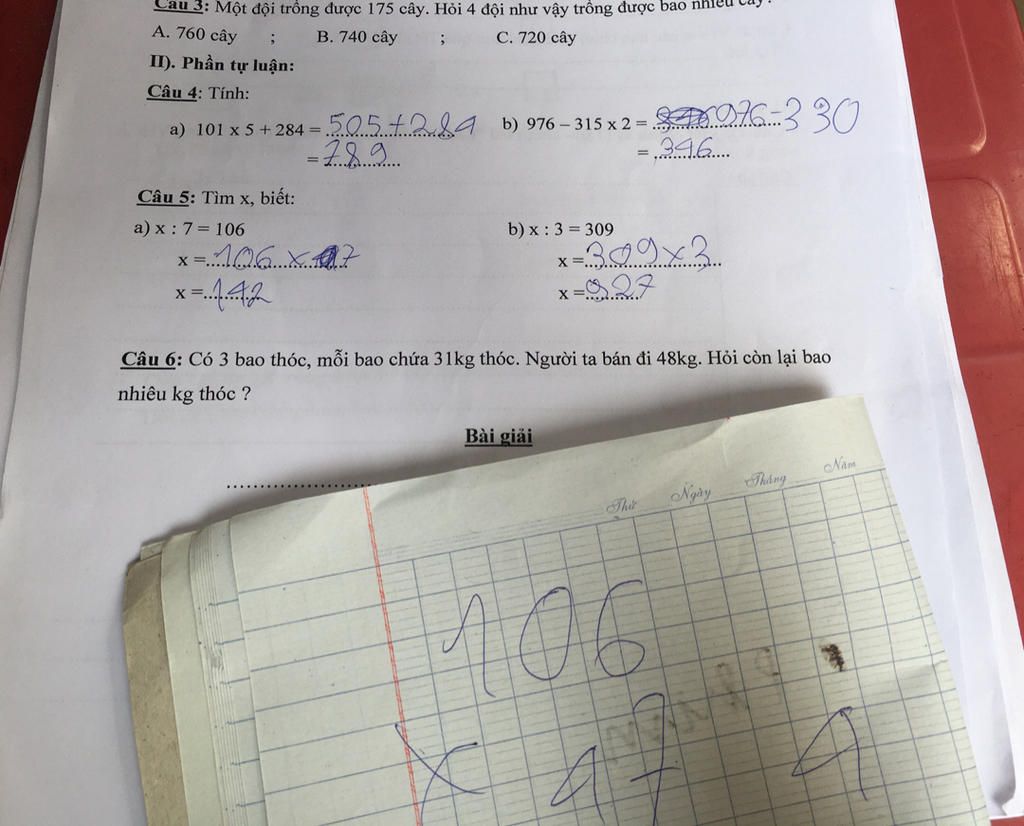 Câu 3: Một đội trồng được 175 cây. Hỏi 4 đội như vậy trồng được bao nhiêu cây?
A. 760 cây ; B. 740 cây ; C. 720 cây
II). Phần tự luận:
Câu 4: Tính:
a) 101 x 5 + 284 = 505 + 284 b) 976 – 315 x 2 = 976 - 330
= 789 = 346
Câu 5: Tìm x, biết:
a) x : 7 = 106 b) x : 3 = 309
x = 106 x 7 x = 309 x 3
x = 142 x = 927
Câu 6: Có 3 bao thóc, mỗi bao chứa 31kg thóc. Người ta bán đi 48kg. Hỏi còn lại bao
nhiêu kg thóc ?
Bài giải
Thứ Ngày Tháng Năm
106
x 7